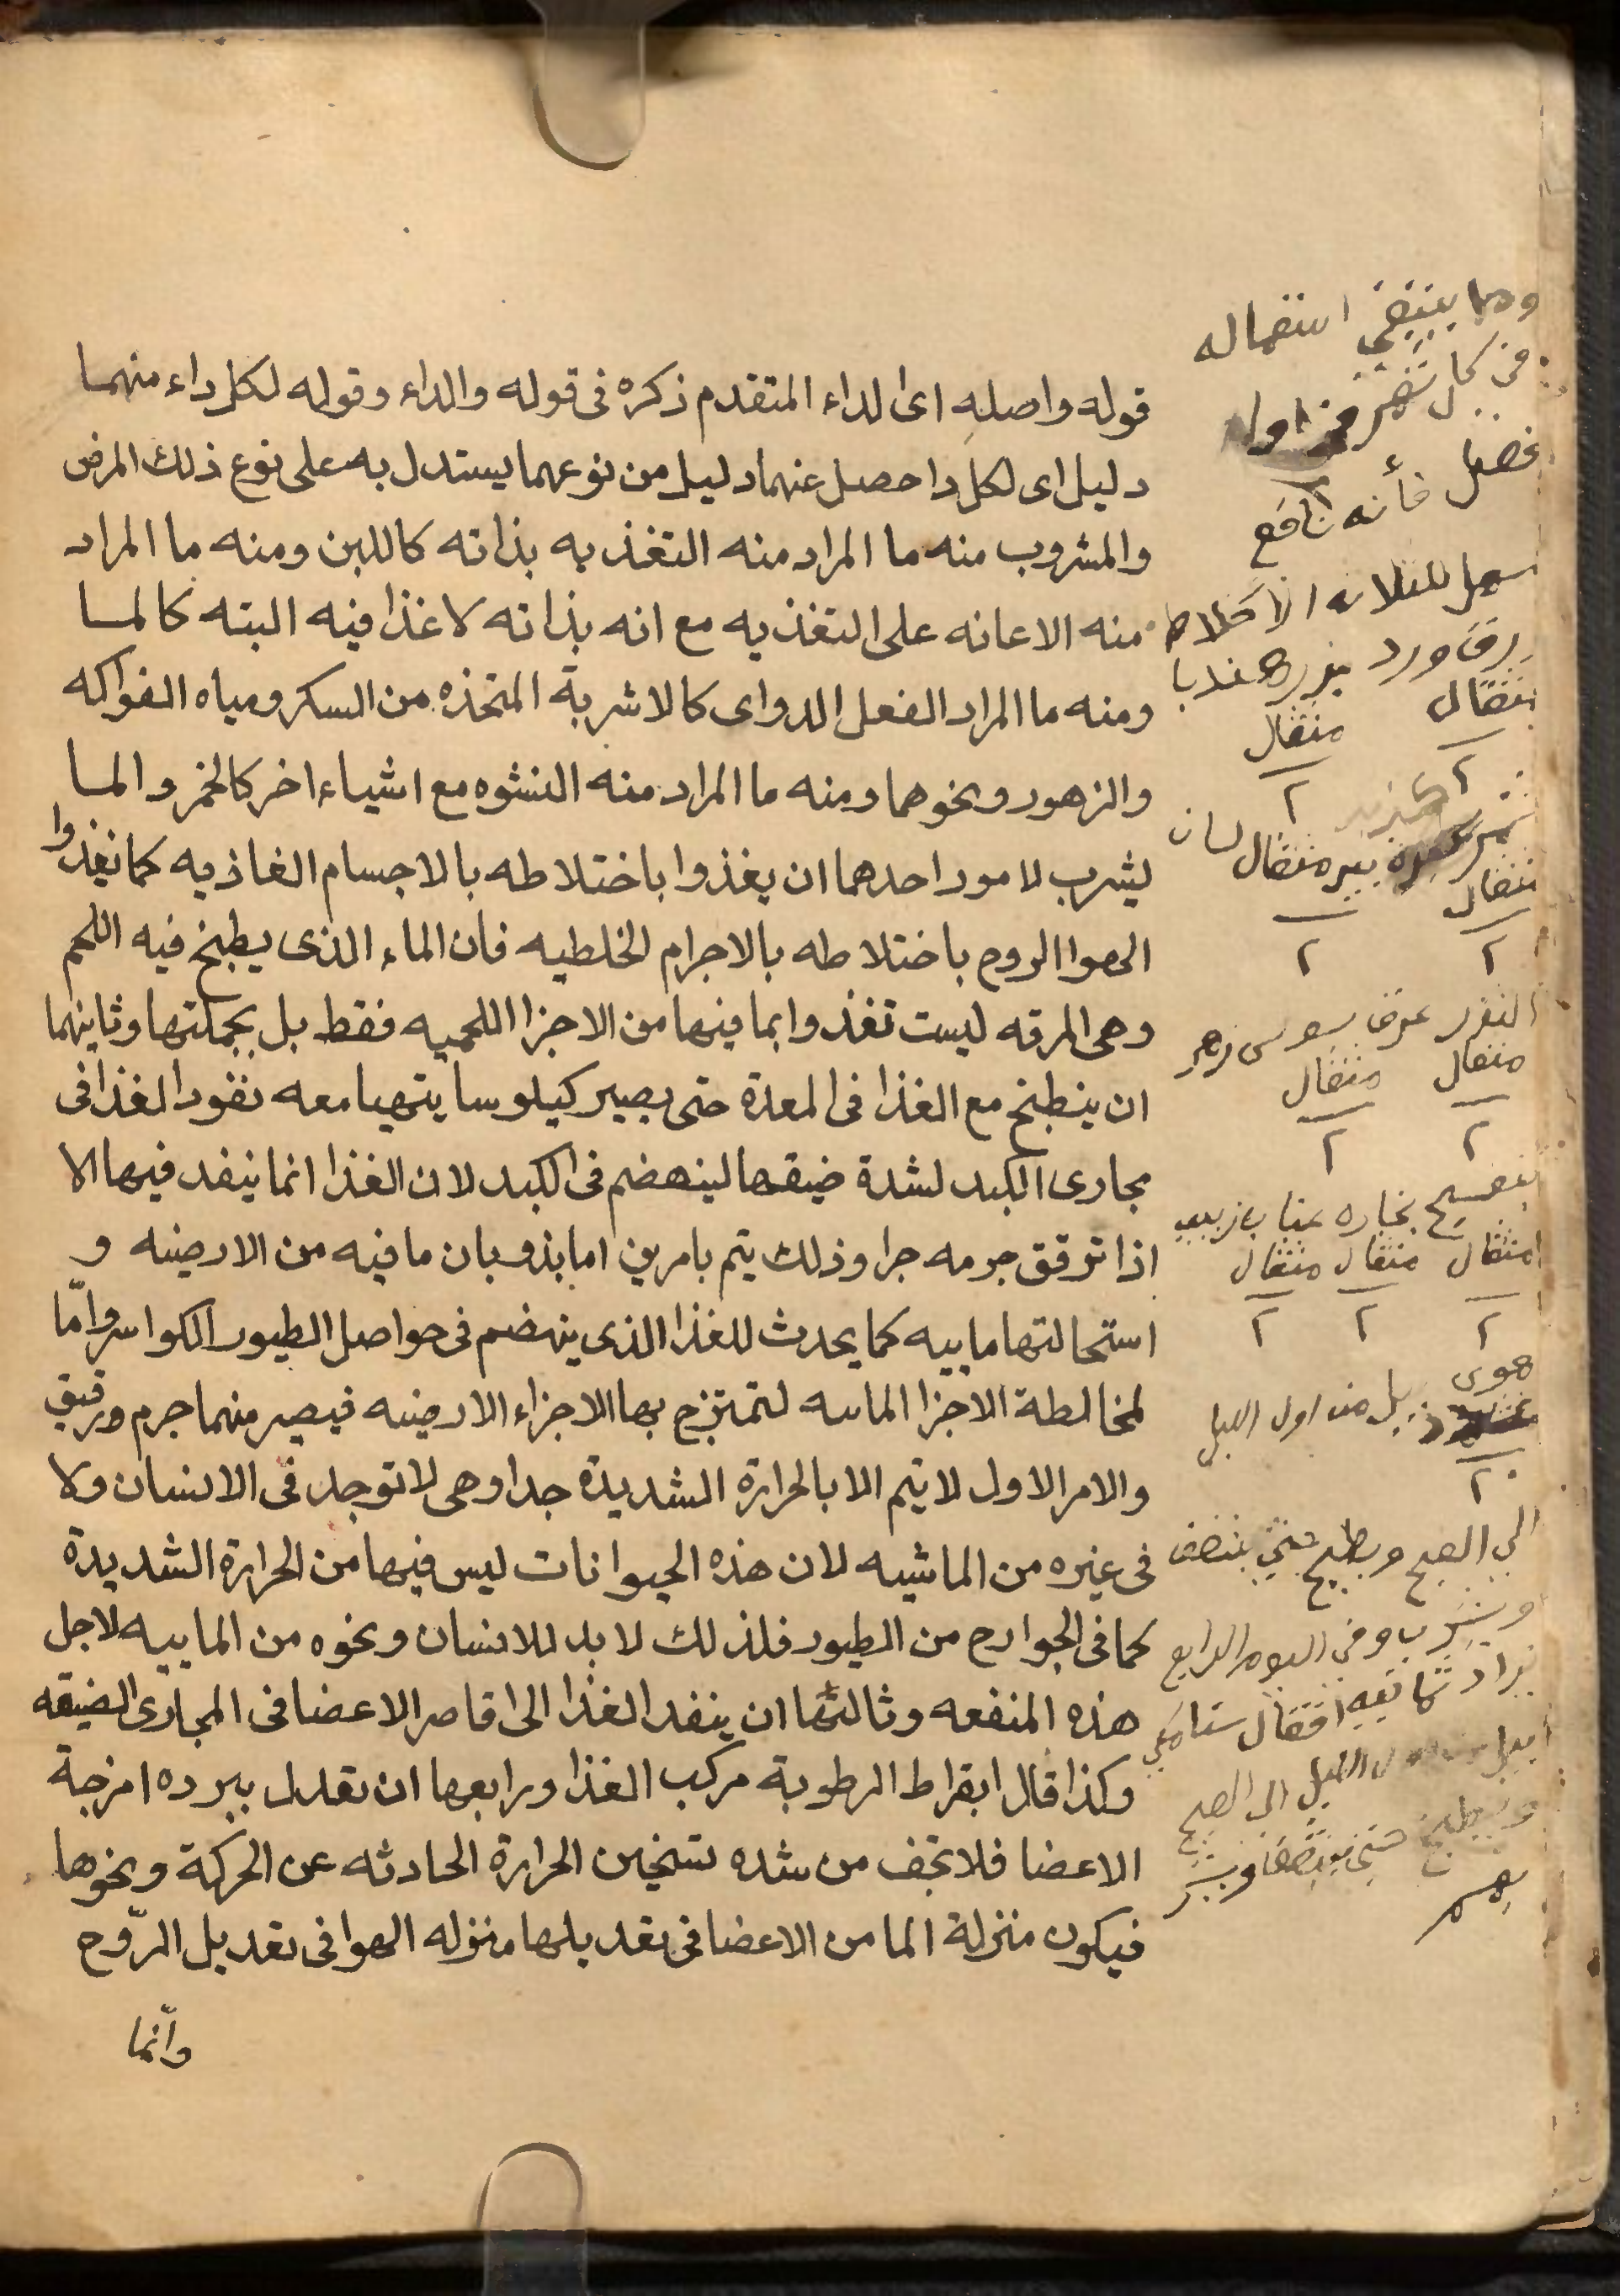 قوله واصله اى لداء المتقدم ذكره فى قوله والداء وقوله لكل داء منهما
دليل اى لكل دا حصل عنهما دليل من نوعهما يستدل به على نوع ذلك المرض
والمشروب منه ما المراد منه التغذيه بذاته كاللبن ومنه ما المراد
منه الاعانه على التغذيه مع انه بذاته لا غذا فيه البته كالما
ومنه ما المراد الفعل الدواى كالاشربة المتخذه من السكر ومياه الفواكه
والزهور ونحوهما ومنه ما المراد منه النشوه مع اشياء اخر كالخمر والما
يشرب لامور احدهما ان يغذوا باختلاطه بالاجسام الغاذيه كما يغذوا
الهوا الروح باختلاطه بالاجرام الخلطيه فان الماء الذى يطبخ فيه اللحم
وهى المرقه ليست تغذوا بما فيها من الاجزا اللحميه فقط بل بجملتها وثانيهما
ان ينطبخ مع الغذا فى المعدة حتى يصير كيلوسا يتهيا معه نفود الغذا فى
مجارى الكبد لشدة ضيقها لينهضم فى الكبد لان الغذا انما ينفد فيها الا
اذا ترقق جرمه جدا وذلك يتم بامرين اما بذوبان ما فيه من الارضيه و
استحالتها ماييه كما يحدث للغذا الذى ينهضم فى حواصل الطيور الكواسر وامّا
لمخالطة الاجزا المائيه لتمتزج بها الاجزاء الارضيه فيصير منهما جرم ورقيق
والامر الاول لا يتم الا بالحرارة الشديدة جدا وهى لا توجد فى الانسان ولا
فى غيره من الماشيه لان هذه الحيوانات ليس فيها من الحرارة الشديدة
كما فى الجوارح من الطيور فلذلك لا بد للانسان ونحوه من الماييه لاجل
هذه المنفعه وثالثها ان ينفد الغذا الى اقاصر الاعضا فى المجارى الضيقه
وكذا قال ابقراط الرطوبة مركب الغذا ورابعها ان تعدل ببرده امزجة
الاعضا فلا تجف من شده تسخين الحرارة الحادثه عن الحركة ونحوها
فيكون منزلة الما من الاعضا فى تعديلها منزله الهوا فى تعديل الرّوح
وانّما
ومما ينبغي استعماله
في كل شهر في اول
فصل فأنه نافع
للثلاثه الاخلاط
ورد بزر هندبا
مثقال مثقال
٢ ٢
مثقال لسان
مثقال
٢ ٢
عرق سوس زهر
مثقال مثقال
٢ ٢
بنفسج عناب زبيب
مثقال مثقال مثقال
٢ ٢ ٢
هوى
من اول الليل
٢
الي الصبح ويطبخ حتي ينتصف
ويشرب وفي اليوم الرابع
يزاد سنامكي
الليل الى الصبح
ويطبخ حتي ينتصف ويشرب